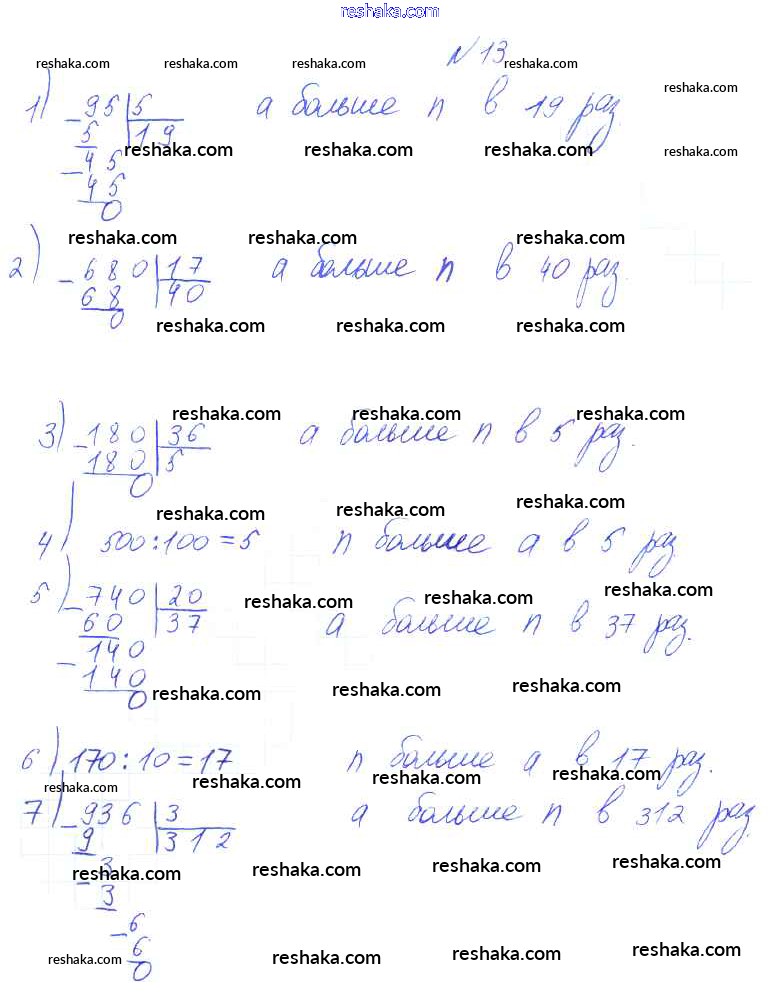 reshaka.com
№ 13
reshaka.com reshaka.com reshaka.com reshaka.com
1) - 95 | 5 а больше n в 19 раз.
5 | 19
reshaka.com reshaka.com reshaka.com reshaka.com
- 45
45
0
reshaka.com reshaka.com reshaka.com
2) - 680 | 17 а больше n в 40 раз.
68 | 40
0
reshaka.com reshaka.com reshaka.com
reshaka.com reshaka.com reshaka.com
3) - 180 | 36 а больше n в 5 раз.
180 | 5
0
reshaka.com reshaka.com reshaka.com
4) 500:100=5 n больше а в 5 раз
5) - 740 | 20
reshaka.com reshaka.com reshaka.com
60 | 37 а больше n в 37 раз.
- 140
140
0
reshaka.com reshaka.com reshaka.com
6) 170:10=17 n больше а в 17 раз.
reshaka.com reshaka.com reshaka.com reshaka.com
7) - 936 | 3 а больше n в 312 раз.
9 | 312
- 3
reshaka.com reshaka.com reshaka.com reshaka.com
3
- 6
6
0
reshaka.com reshaka.com reshaka.com reshaka.com